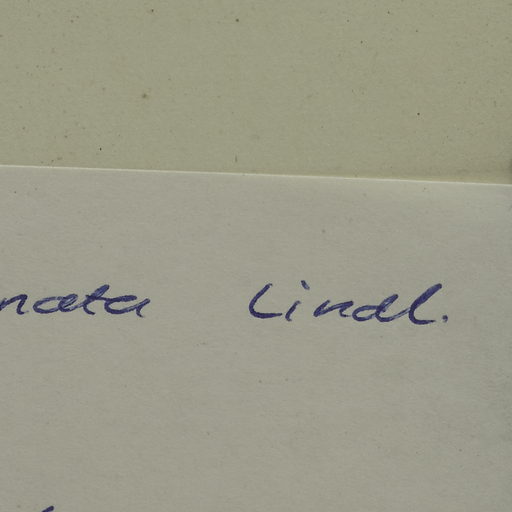 nata Lindl.